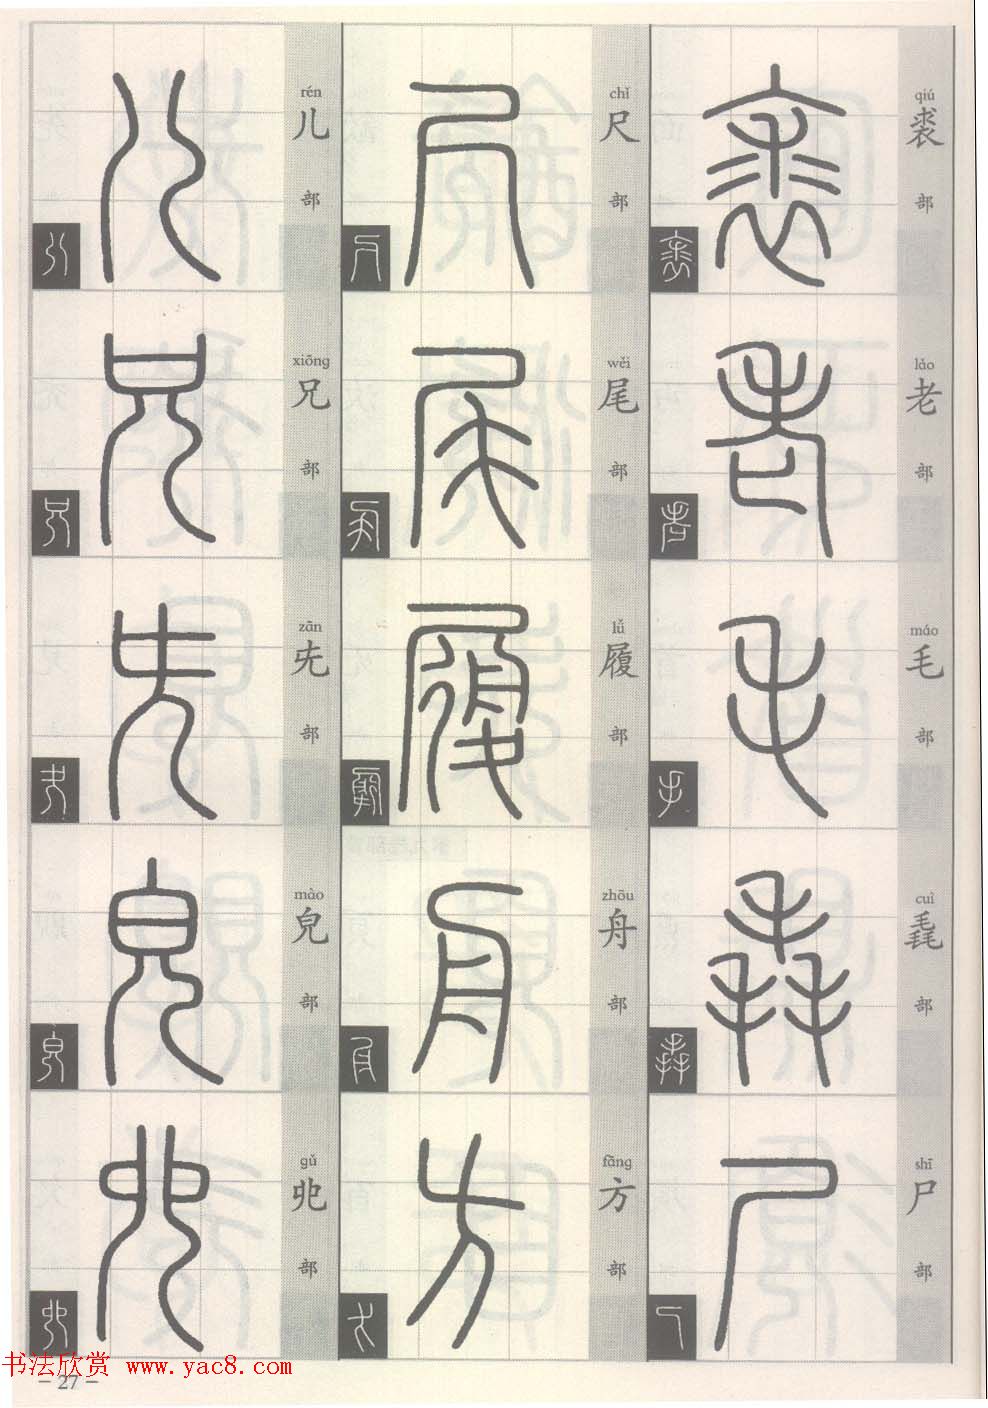 qiú
裘
部
lǎo
老
部
máo
毛
部
cuì
毳
部
shī
尸
部
chǐ
尺
部
wěi
尾
部
lǚ
履
部
zhōu
舟
部
fāng
方
部
rén
儿
部
xiōng
兄
部
zān
兂
部
mào
皃
部
gǔ
𠑹
部
书法欣赏 www.yac8.com
- 27 -